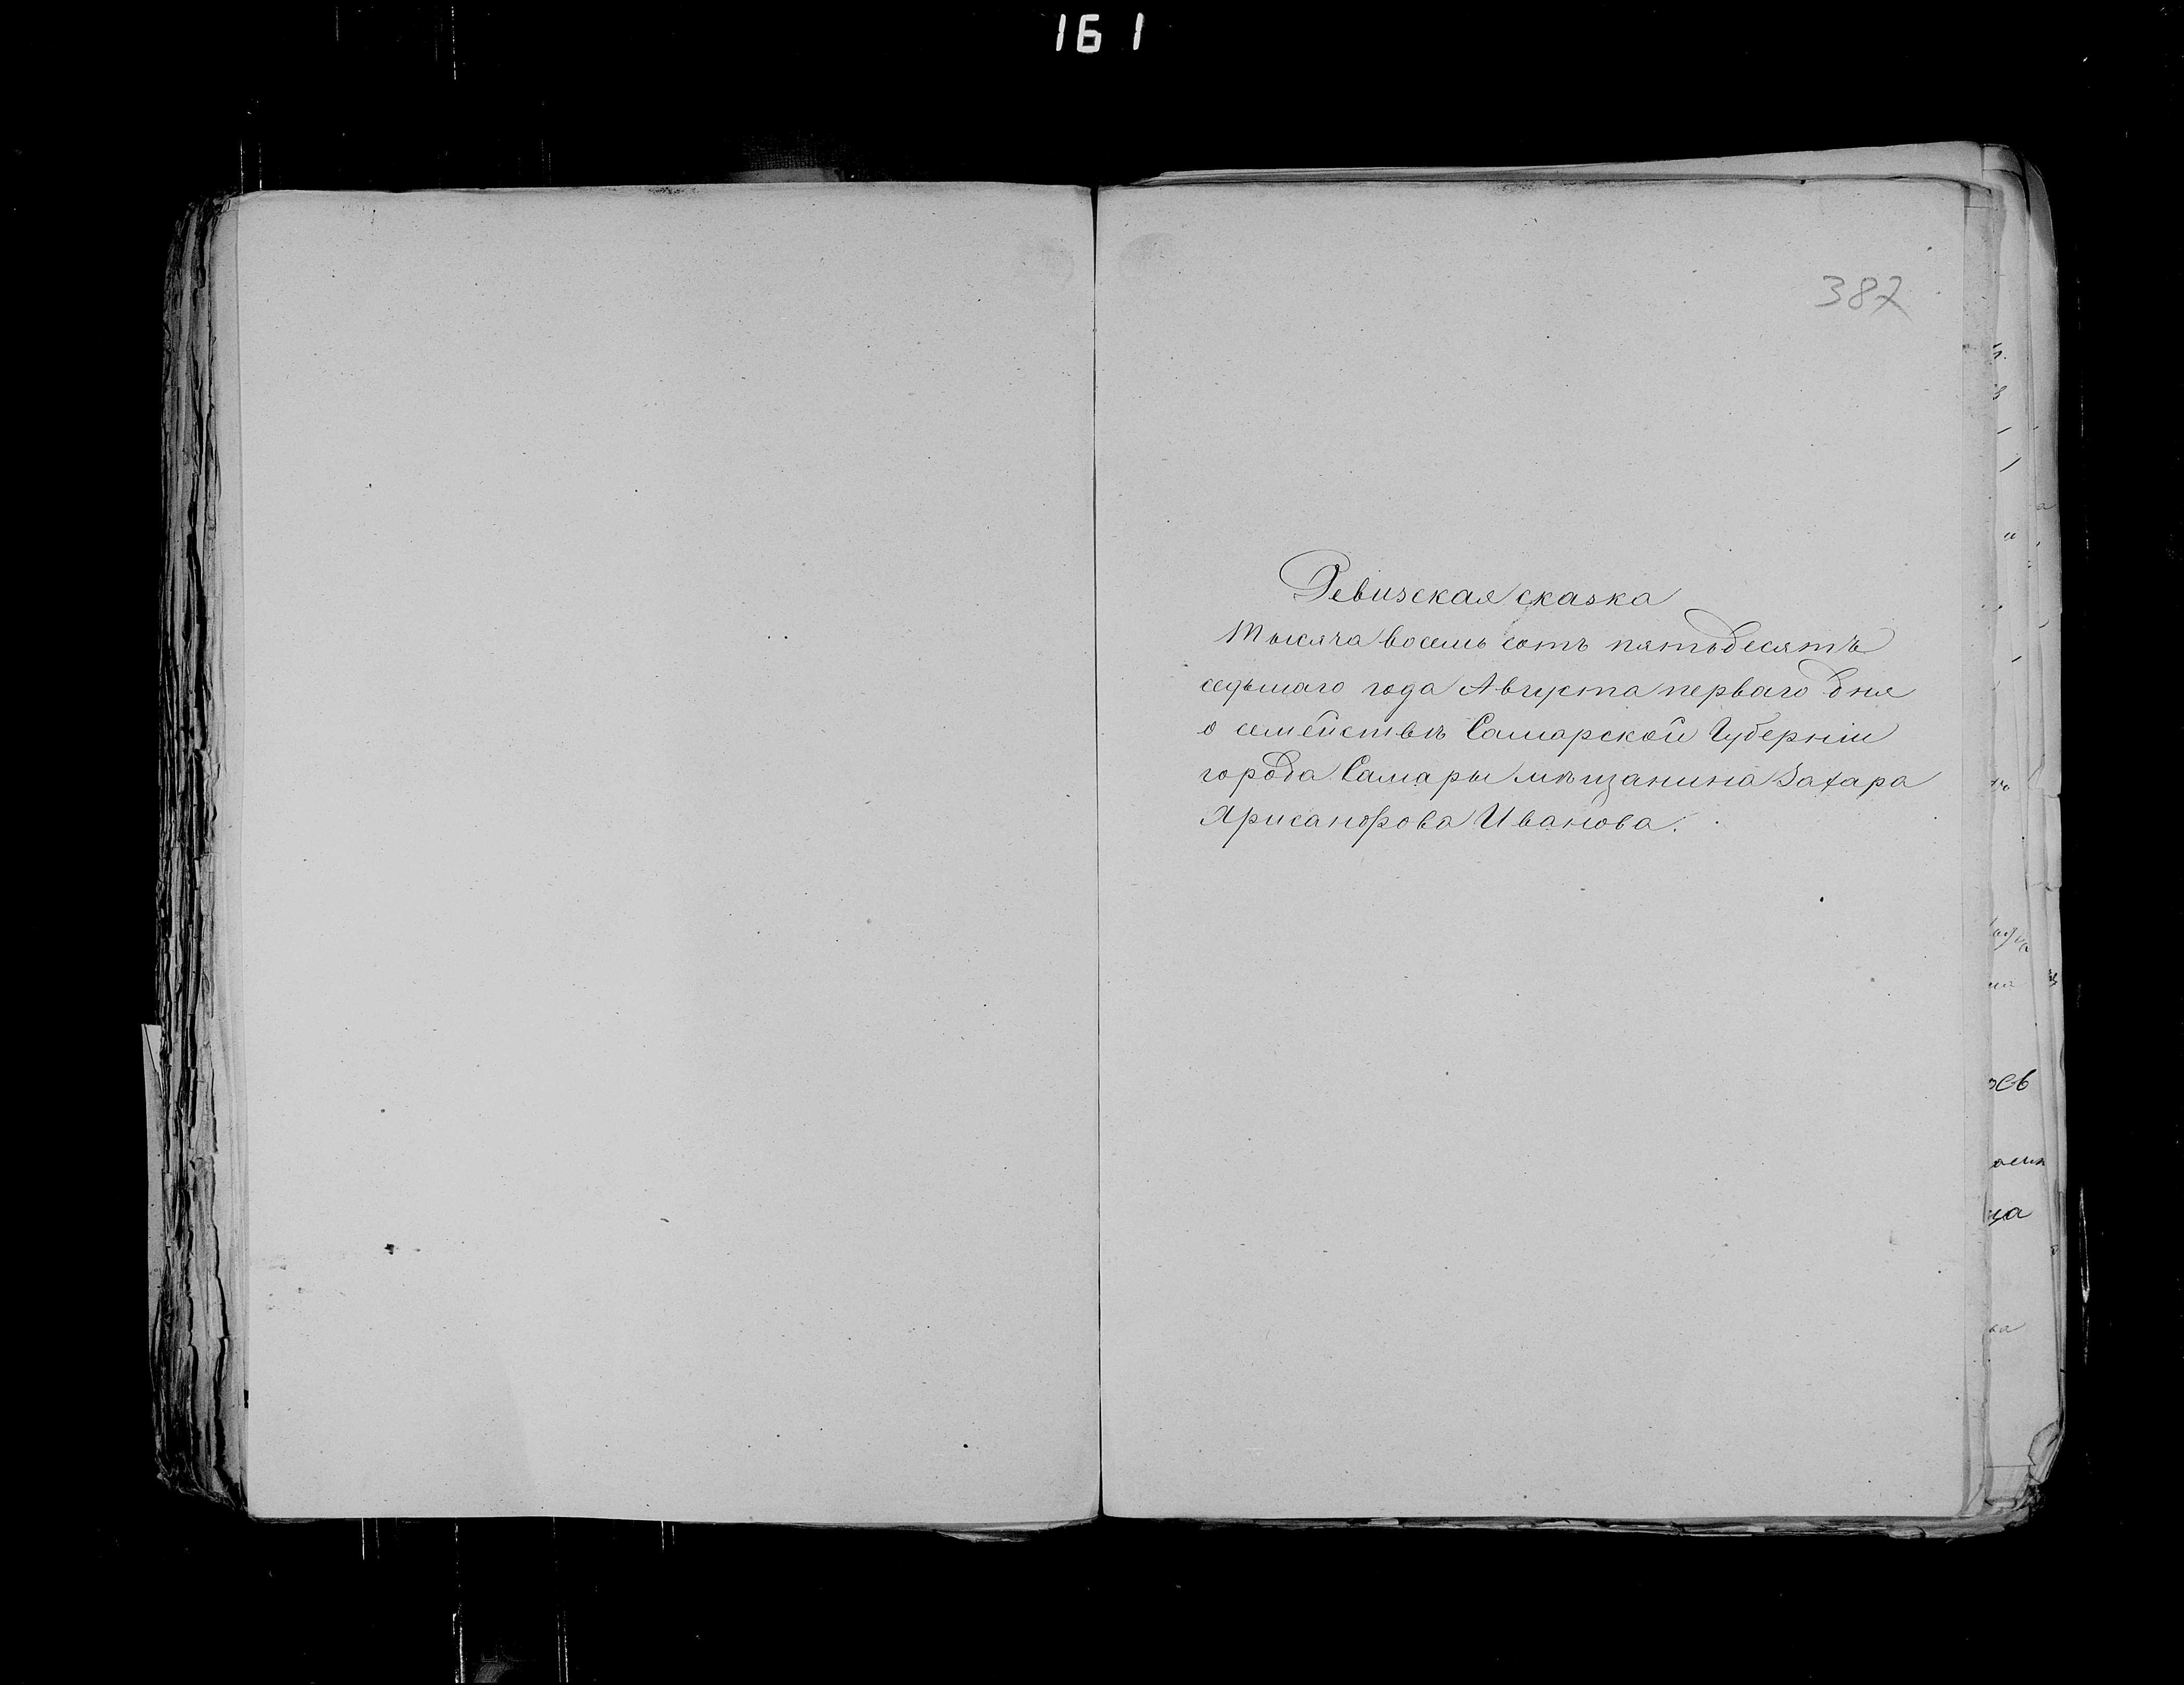 161
387
Ревизская сказка
Тысяча восемь сотъ пятьдесятъ
седьмаго года Августа перваго дня
о семействѣ Самарской Губерніи
города Самары мѣщанина Захара
Хрисанфова Иванова.